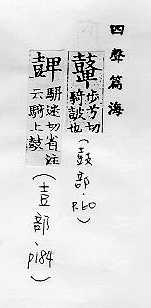 四聲篇海
鼙 步兮切
騎鼓也
(鼓部.P.60)
駢迷切省注
云騎上鼓
(壴部.P184)